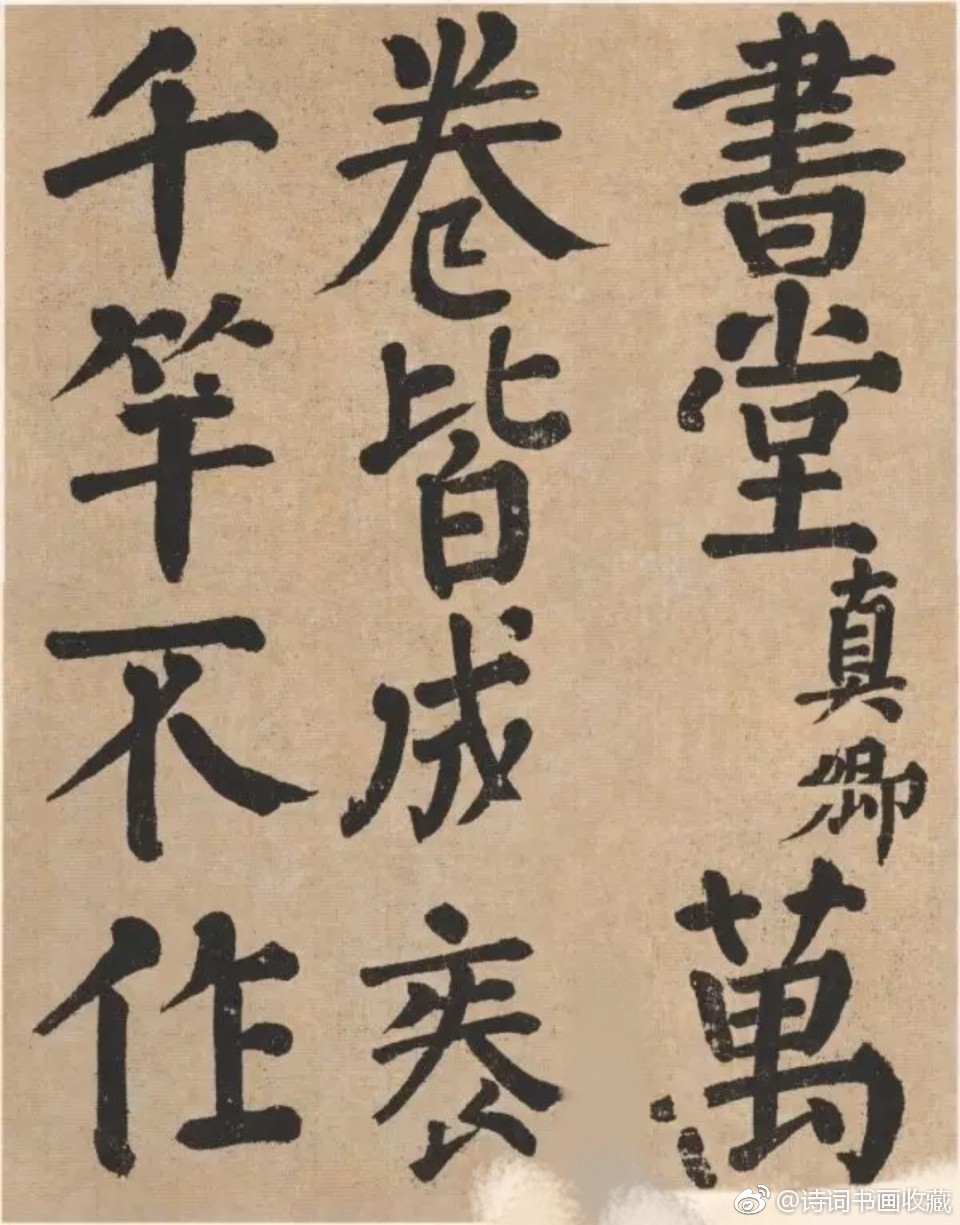 書堂真卿萬
卷皆成袠
千竿不作
@诗词书画收藏